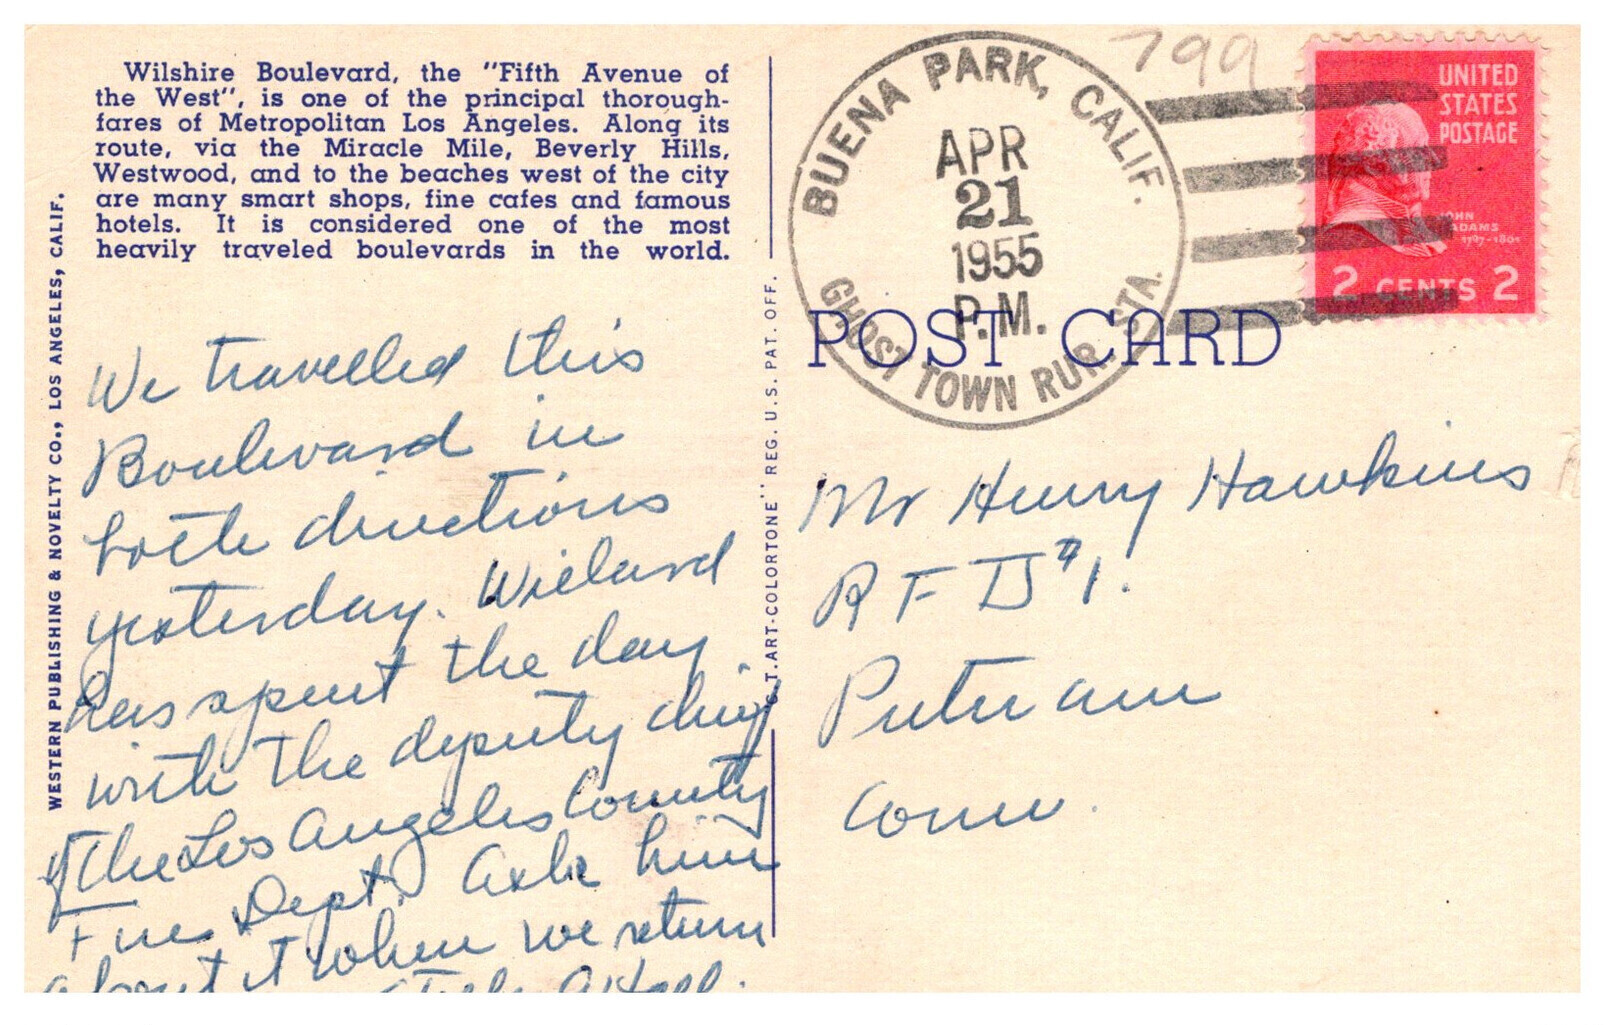 Wilshire Boulevard, the "Fifth Avenue of
the West", is one of the principal thorough-
fares of Metropolitan Los Angeles. Along its
route, via the Miracle Mile, Beverly Hills,
Westwood, and to the beaches west of the city
are many smart shops, fine cafes and famous
hotels. It is considered one of the most
heavily traveled boulevards in the world.
WESTERN PUBLISHING & NOVELTY CO., LOS ANGELES, CALIF.
We travelled this
Boulevard in
both directions
yesterday. Willard
has spent the day
with the deputy chief
of the Los Angeles County
Fire Dept. Ask him
about it when we return
C.T. ART-COLORTONE" REG. U.S. PAT. OFF.
799
BUENA PARK, CALIF.
APR
21
1955
P.M.
GHOST TOWN RUR. STA.
UNITED
STATES
POSTAGE
JOHN
ADAMS
1797-1801
2 CENTS 2
POST CARD
Mr Henry Hawkins
R F D #1.
Putnam
Conn.